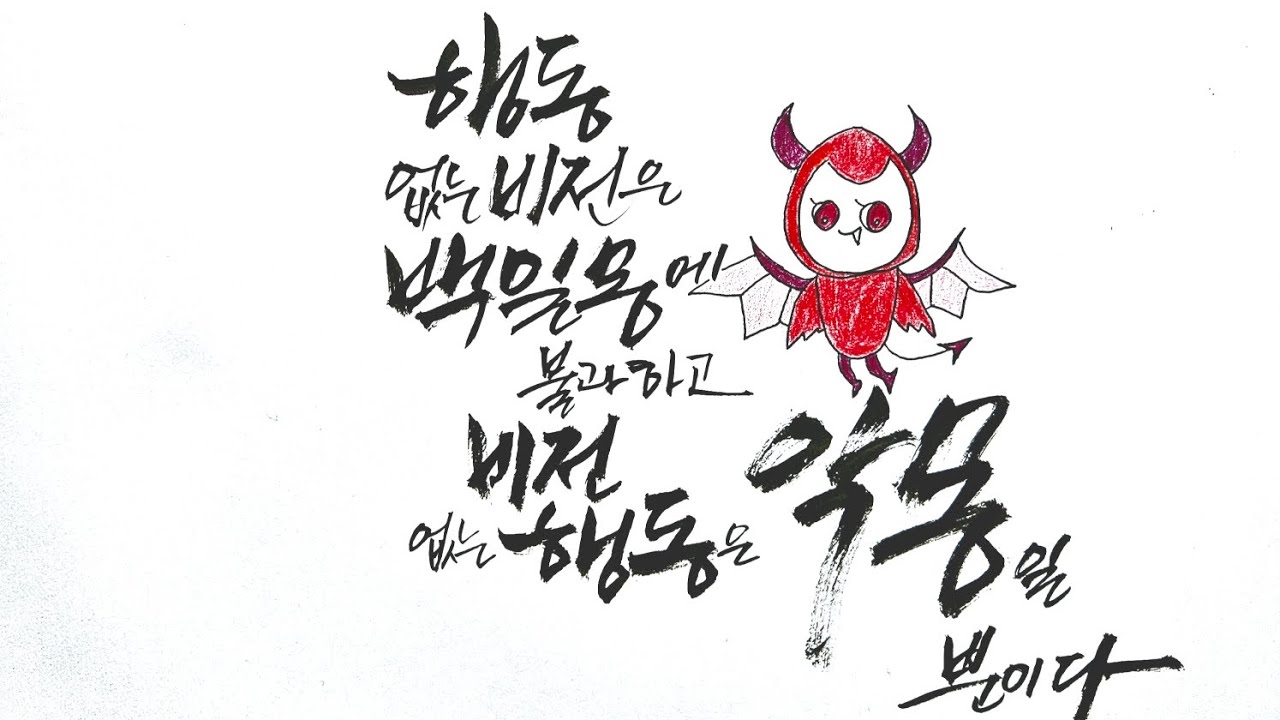 행동
없는 비전은
백일몽에
불과하고
비전
없는 행동은 악몽일
뿐이다